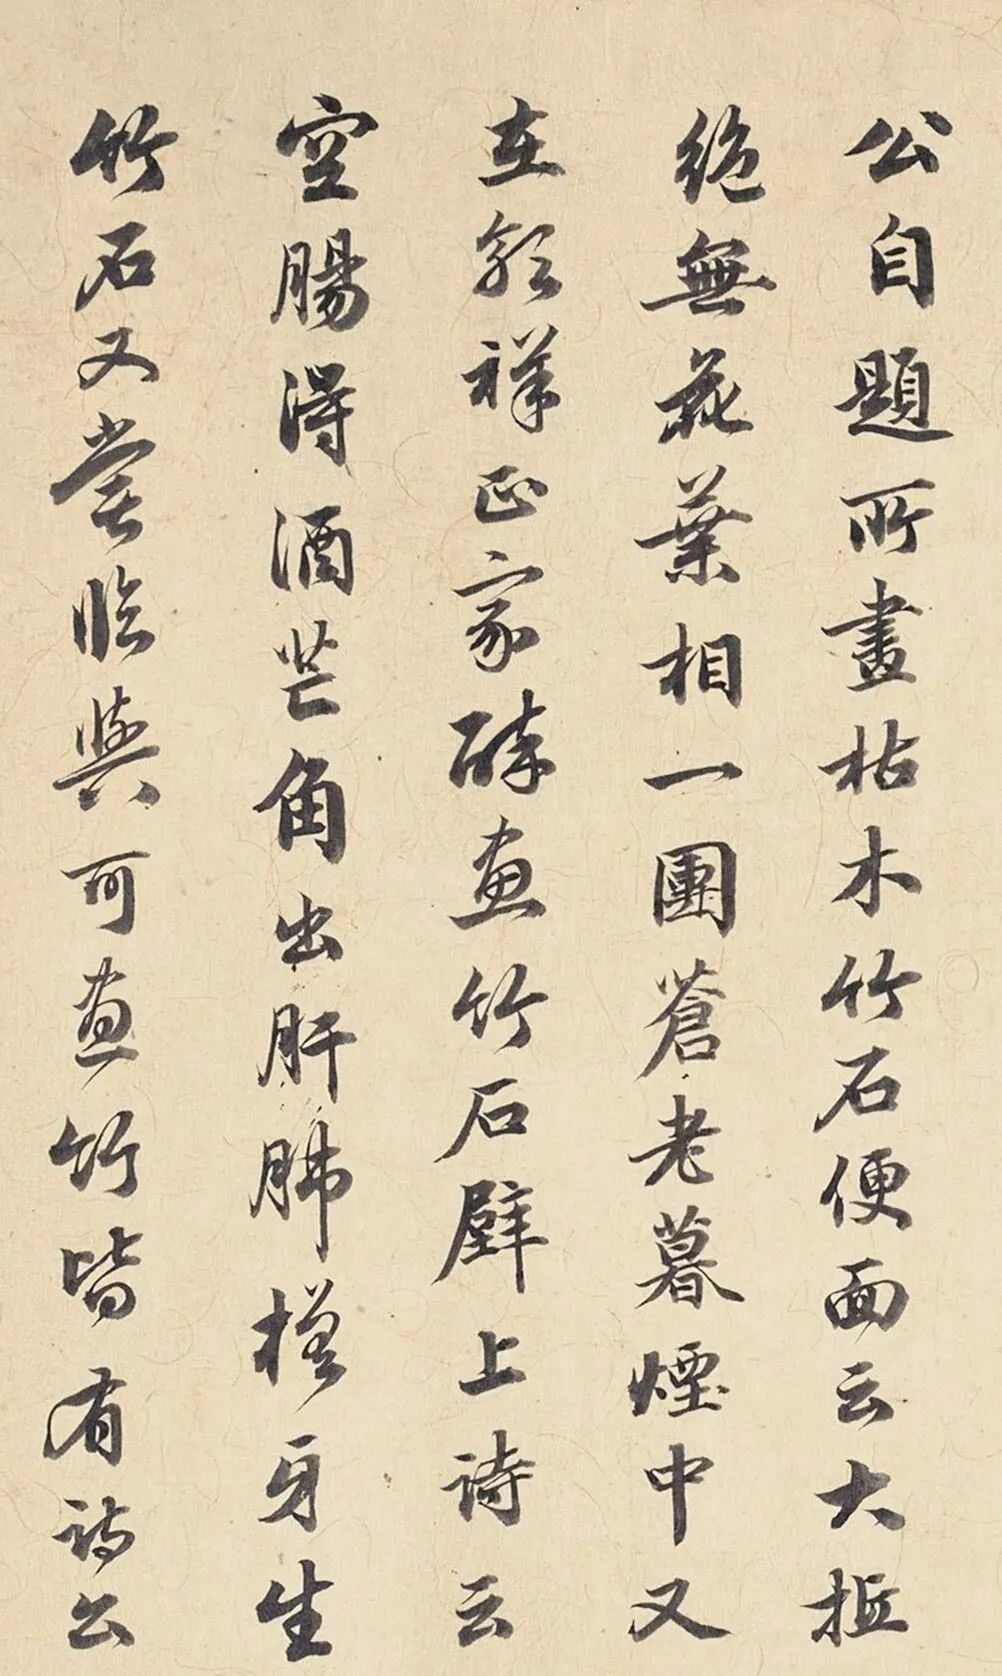 公自題所畫枯木竹石便面云大抵
絶無花葉相一團蒼老暮煙中又
在郭祥正家醉畫竹石壁上詩云
空腸得酒芒角出肝肺槎牙生
竹石又嘗臨與可畫竹皆有詩公